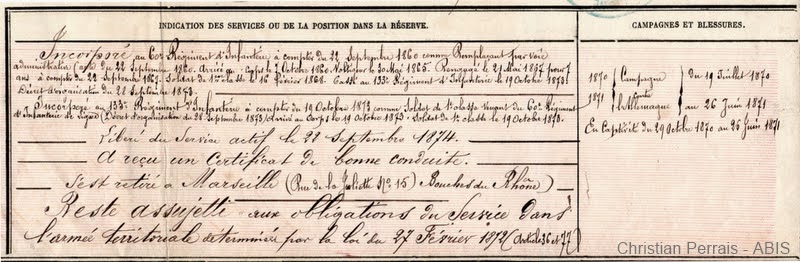 INDICATION DES SERVICES OU DE LA POSITION DANS LA RÉSERVE.
Incorporé au 60e Régiment d'Infanterie à compter du 22 Septembre 1860 comme Remplaçant par voie
administrative (acte du 22 septembre 1860. Arrivé au Corps le 7 Octobre 1860. Voltigeur le 30 Mai 1865. Rengagé le 21 Mai 1867 pour
ans à compter du 22 Septembre 1867. Soldat de 1re classe le 16 février 1868. Passé au 133e Régiment d'Infanterie le 19 Octobre 1873
Décret d'organisation du 28 Septembre 1873.
Incorporé au 133e Régiment d'Infanterie à compter du 19 Octobre 1873 comme Soldat de 1re classe Venant du 60e Régiment
d'Infanterie de Ligne (Décret d'organisation du 28 Septembre 1873) Arrivé au Corps le 19 Octobre 1873. Soldat de 1e classe le 19 Octobre 1873.
Libéré du Service actif le 22 Septembre 1874.
A reçu un Certificat de bonne conduite.
S'est retiré à Marseille (Rue de la Joliette No 15) Bouches du Rhône)
Reste assujetti aux obligations du Service dans
l'armée territoriale déterminée par la loi du 27 Février 1872 (Article 36 et 77)
CAMPAGNES ET BLESSURES.
1870 Campagne du 19 Juillet 1870
1871 contre l'Allemagne au 26 Juin 1871
En Captivité du 29 Octobre 1870 au 26 Juin 1871
Christian Perrais - ABIS